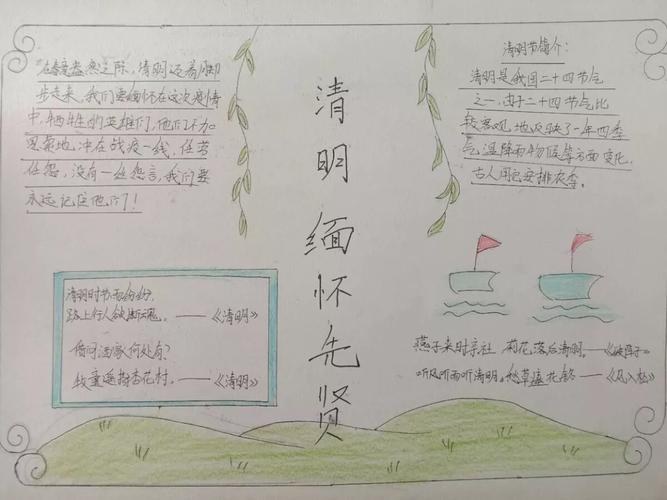 在春意盎然之际,清明迈着脚
步走来,我们要缅怀在这次疫情
中,牺牲的英雄们,他们不加
思索地,冲在战疫一线,任劳
任怨,没有一丝怨言,我们要
永远记住他们!
清明缅怀先贤
清明节简介:
清明是我国二十四节气
之一,由于二十四节气比
较客观地反映了一年四季
气温降雨物候等方面变化,
古人用它安排农事。
清明时节雨纷纷,
路上行人欲断魂。——《清明》
借问酒家何处有?
牧童遥指杏花村。——《清明》
燕子来时社 花落后清明。——《破阵子》
听风听雨听清明。愁草花 ——《风入松》